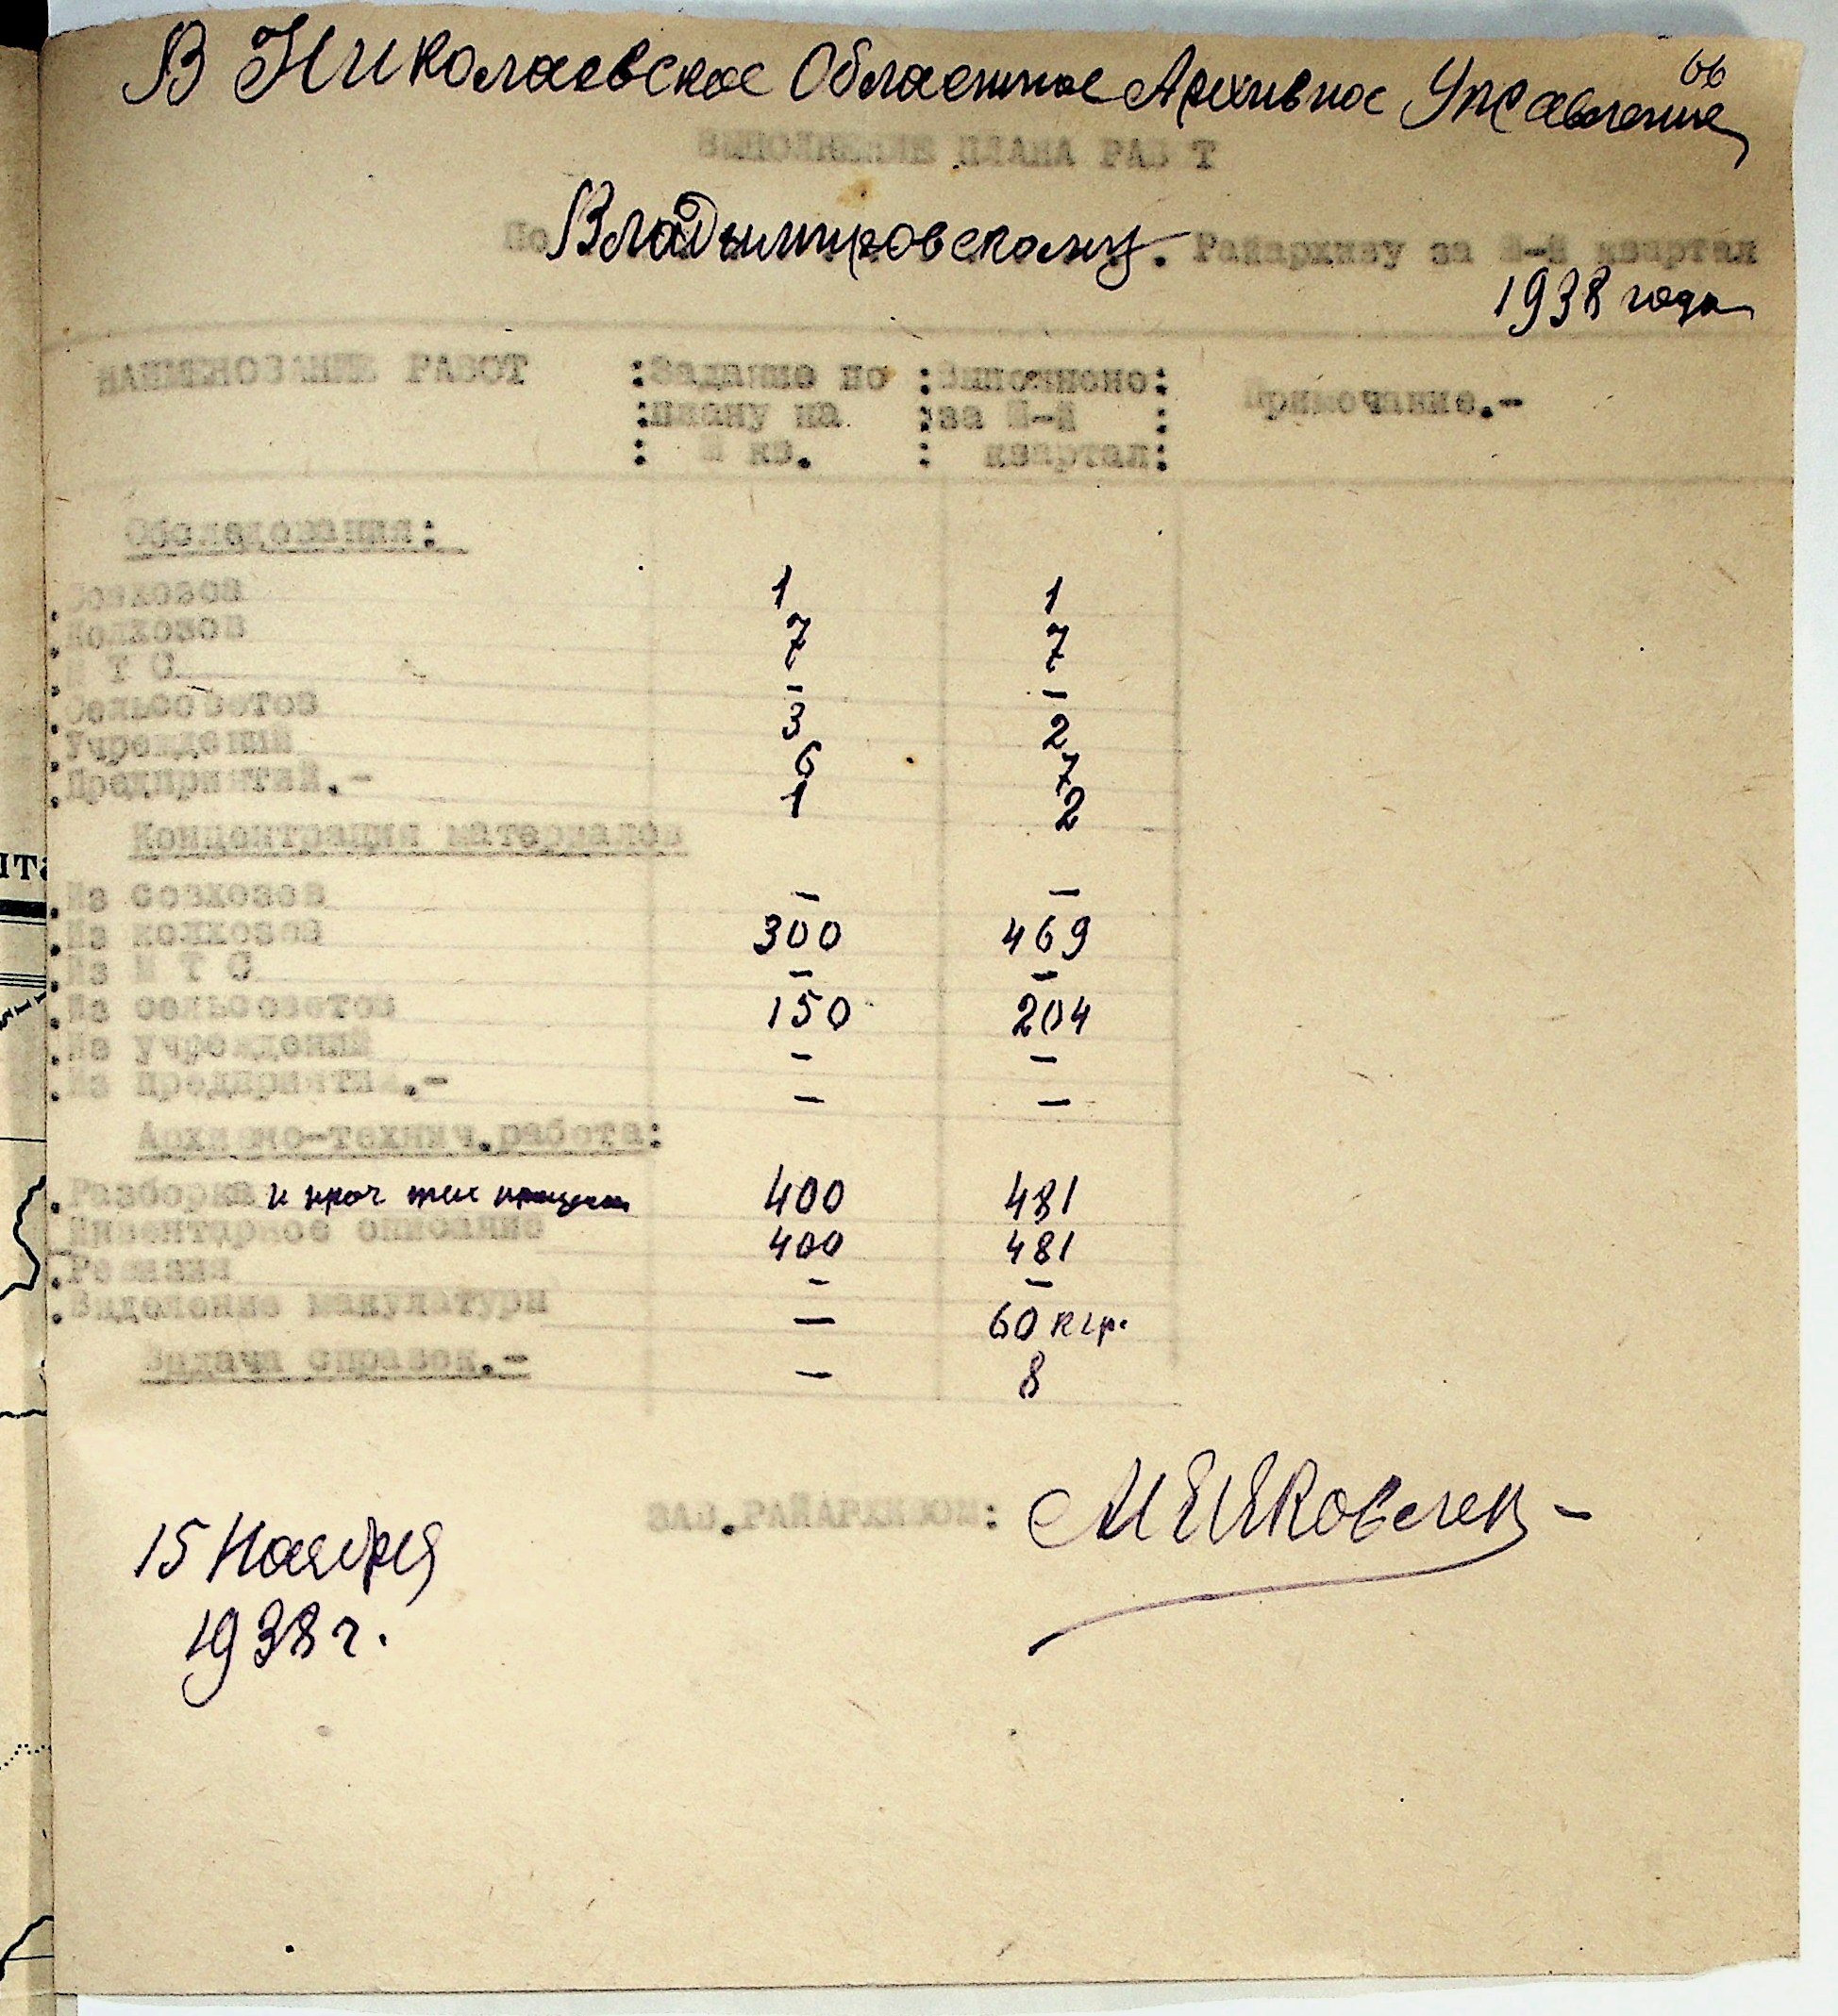 66
В Николаевское Областное Архивное Управление
ВЫПОЛНЕНИЕ ПЛАНА РАБ Т
По Владымировскому. Райархиву за й-й квартал
1938 года
НАИМЕНОВАНИЕ РАБОТ :Задание по :Выполнено: Примечание.-
:плану на :за й-й :
: й кв. : квартал:
Обследования:
Совхозов 1 1
Колхозов 7 7
М Т С – –
Сельсоветов 3 2
Учреждений 6 7
Предприятий.- 1 2
Концентрация материалов
Из совхозов – –
Из колхозов 300 469
Из М Т С – –
Из сельсоветов 150 204
Из учреждений – –
Из предприятий.- – –
Архивно-технич.работа:
Разборка и проч тех процессы 400 481
Инвентарное описание 400 481
– –
Выделение макулатуры – 60 кгр.
Выдача справок.- – 8
ЗАВ.РАЙАРХИВОМ: МЯковлев –
15 Ноября
1938 г.